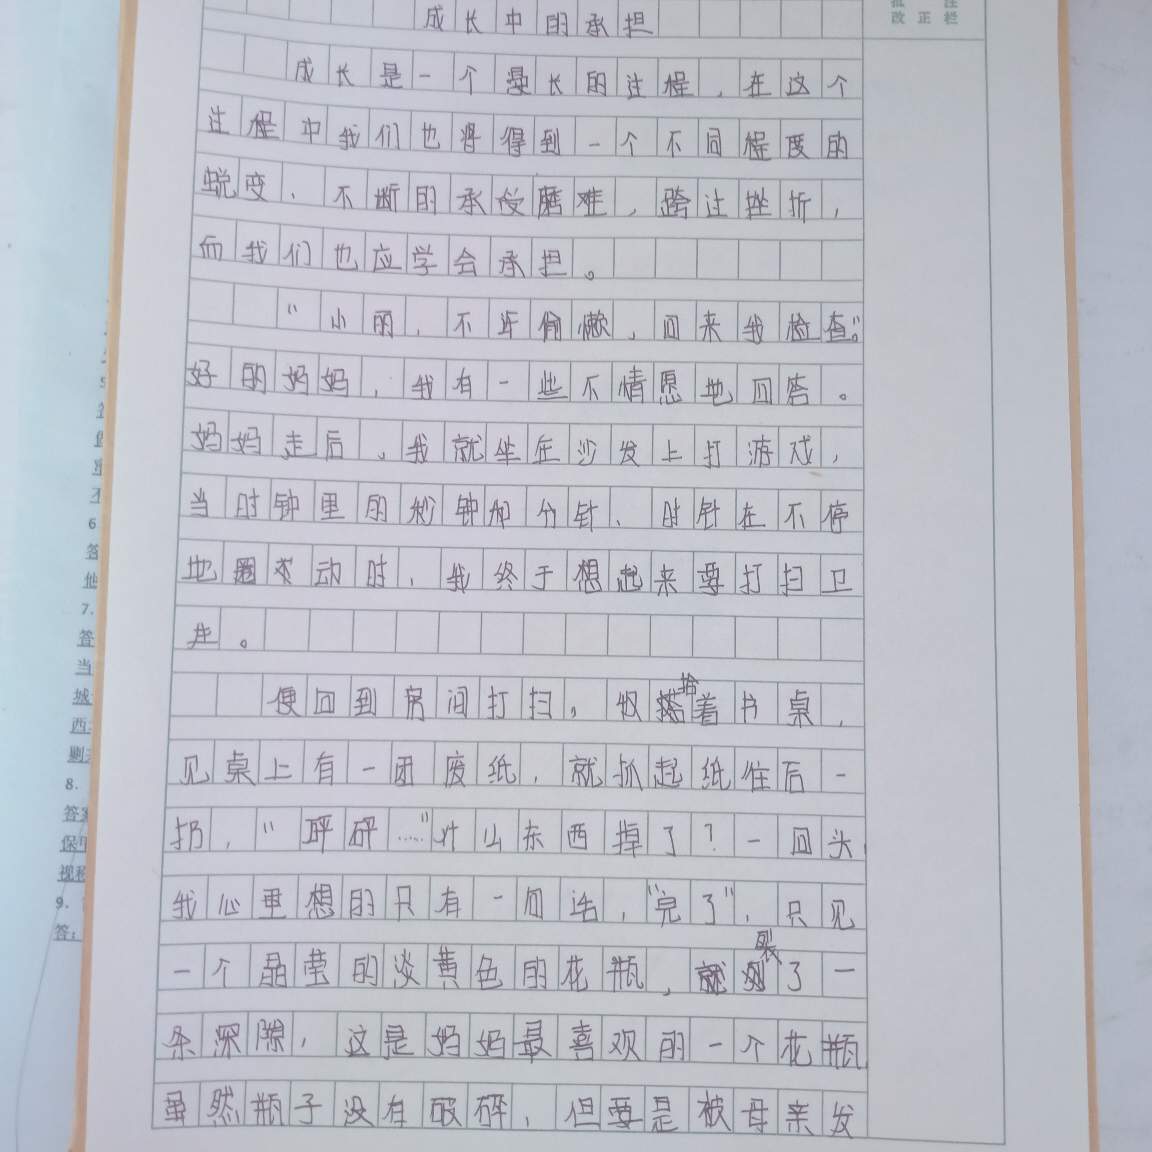 批 注
改 正 栏
成长中的承担
成长是一个漫长的过程，在这个
过程中我们也将得到一个不同程度的
蜕变、不断的承受磨难，跨过挫折，
而我们也应学会承担。
"小丽，不许偷懒，回来我检查"。
好的妈妈，我有一些不情愿地回答。
妈妈走后。我就坐在沙发上打游戏，
当时钟里的秒钟和分针、时针在不停
地 动时，我终于想起来要打扫卫
生。
便回到房间打扫。收拾着书桌，
见桌上有一团废纸，就抓起纸往后一
扔，"砰砰……"什么东西掉了？一回头
我心里想的只有一句话，"完了"，只见
一个晶莹的淡黄色的花瓶，就裂了一
条深隙，这是妈妈最喜欢的一个花瓶
虽然瓶子没有破碎，但要是被母亲发
6
答
他
7.
答
当
城
西
8.
答案
保
视
9.
答：